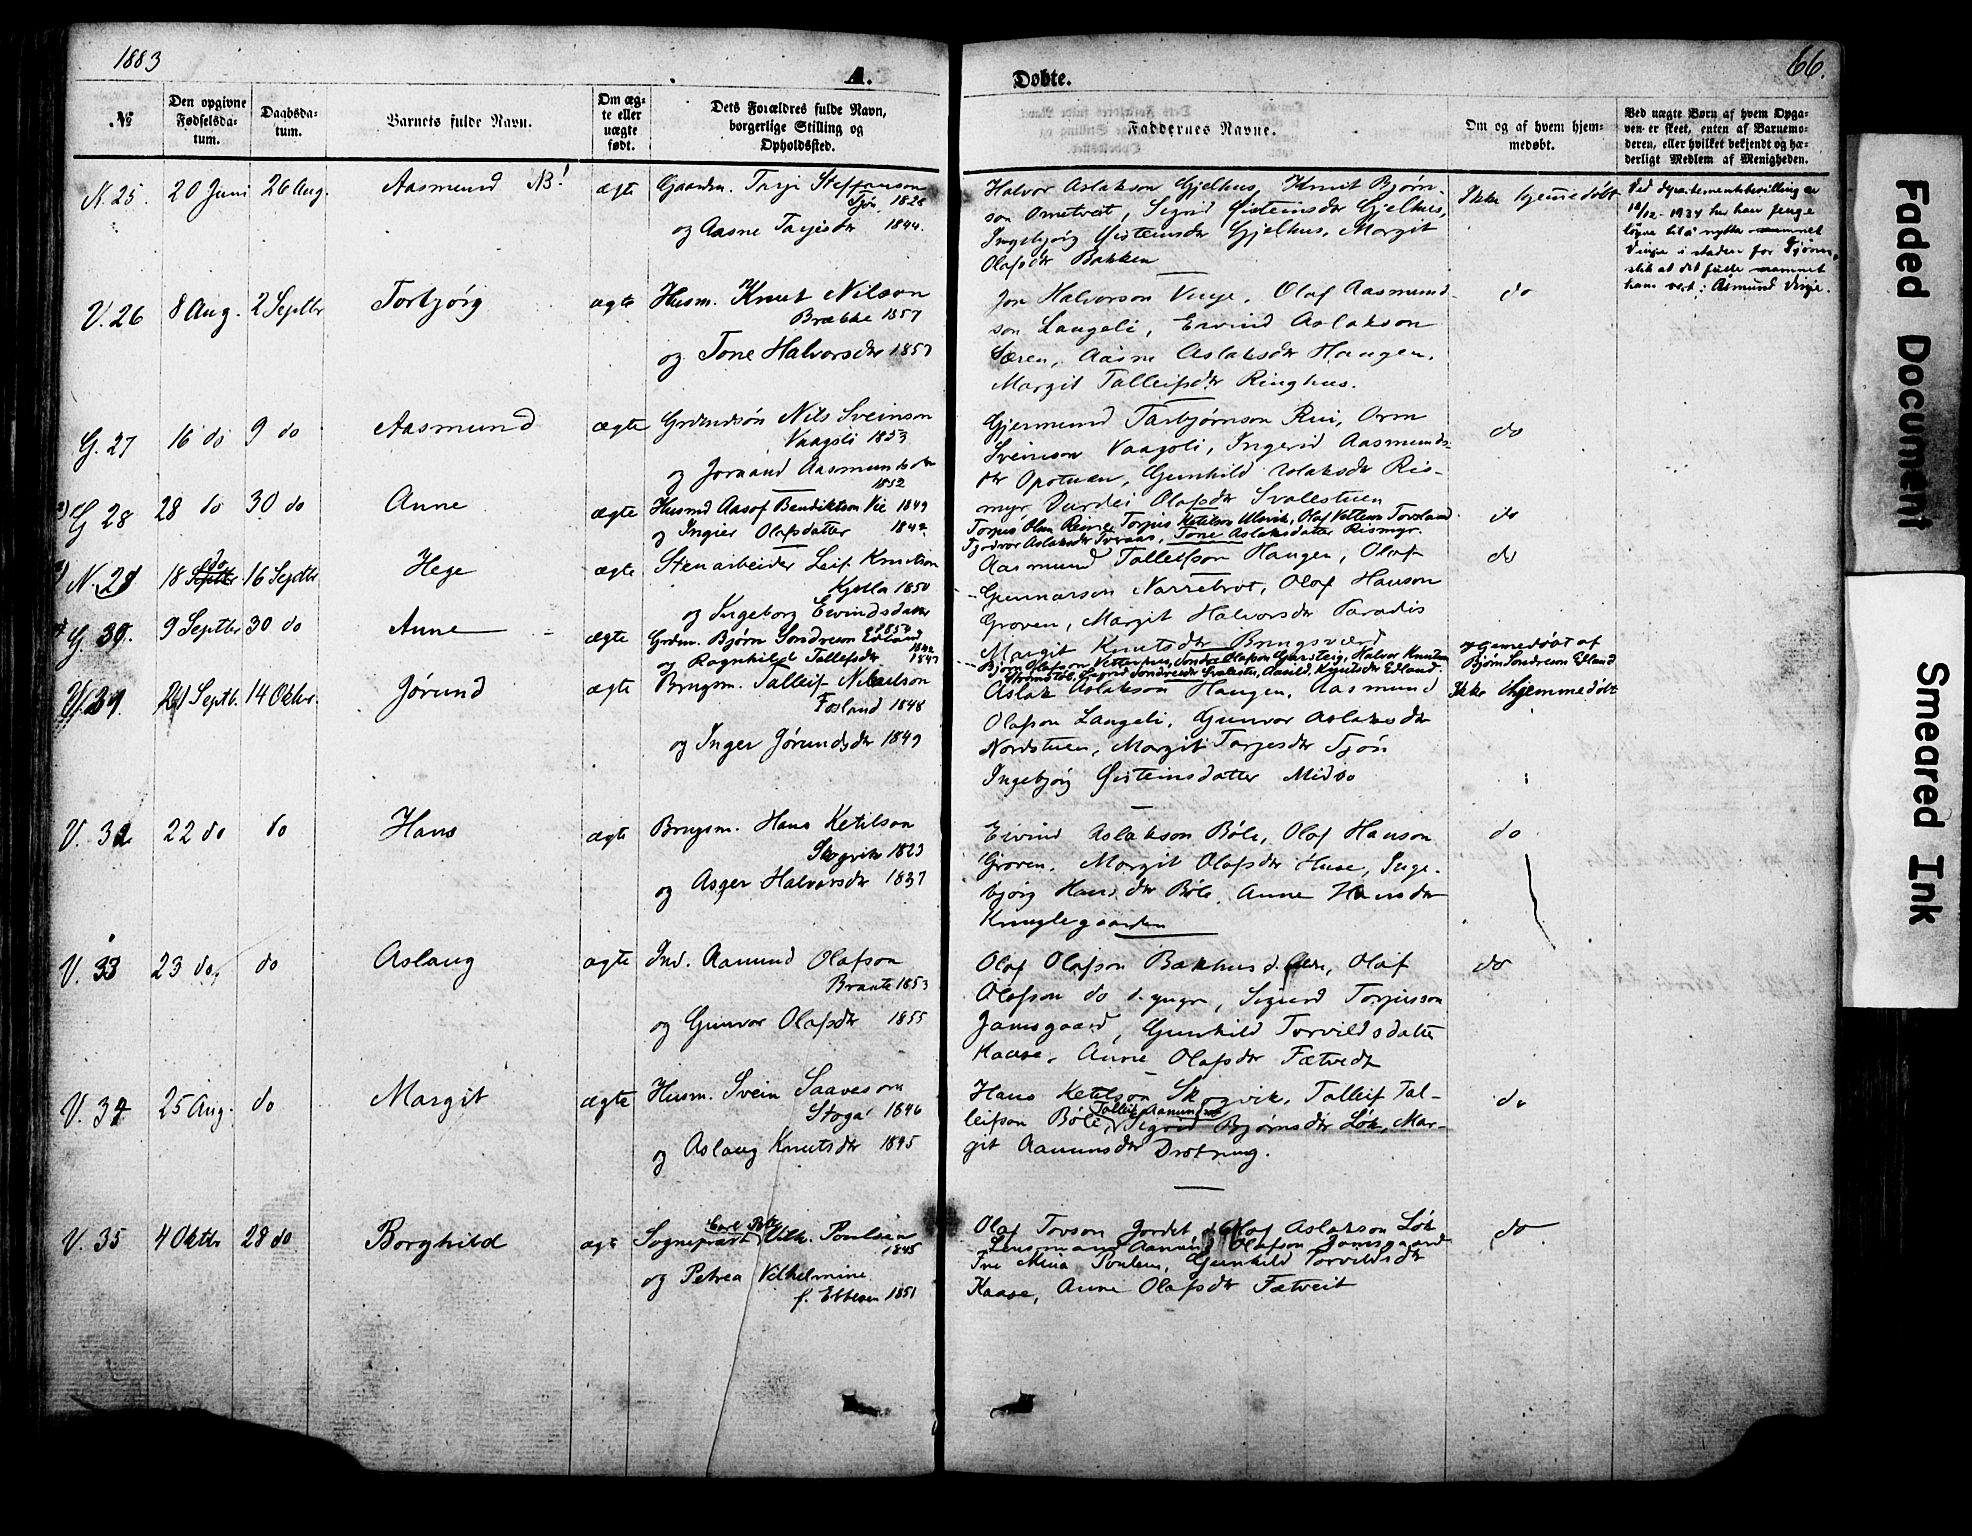 1883
A.
Døbte.
66.
№
Den opgivne Fødselsdatum.
Daabsdatum.
Barnets fulde Navn.
Om ægte eller uægte født.
Dets Forældres fulde Navn, borgerlige Stilling og Opholdssted.
Faddernes Navne.
Om og af hvem hjemmedøbt.
Ved uægte Børn af hvem Opgaven er skeet, enten af Barnemoderen, eller hvilket bekjendt og hæderligt Medlem af Menigheden.
N. 25. 20 Juni 26 Aug. Aasmund NB! ægte
Gaardm. Tarje Steffanson
Tjøn 1826
og Aasne Tarjesdr 1844.
Halvor Aslakson Gjelhus, Knut Bjørn-
son Ometveit, Sigrid Øisteinsdr Gjelhus,
Ingebjørg Øisteinsdr Gjelhus, Margit
Olafsdr Bakken
Ikke hjemmedøbt
Ved departementsbevilling av
10/12-1934 har han fenge
løyve til å nytta namnet
Vinje i staden for Tjønn,
slik at det fulle namnet
hans vert: Åsmund Vinje.
V. 26 8 Aug. 2 Septbr Torbjørg ægte
Husm. Knut Nilson
Brække 1857
og Tone Halvorsdr 1857
Jon Halvorson Vinje, Olaf Aasmund-
son Langeli, Eivind Aslakson
Særen, Aasne Aslaksdr Haugen,
Margit Talleifsdr Ringhus.
do
G. 27 16 do 9 do Aasmund ægte
Grdmdsøn Nils Sveinson
Vaagsli 1853
og Joraand Aasmundsdr
1852
Gjermund Tarbjørnson Rui, Orm
Sveinson Vaagsli, Ingerid Aasmunds-
dr Opstuen, Gunhild Aslaksdr Ris-
myr, Durdei Olafsdr Svalestuen
do
G 28 28 do 30 do Anne ægte
Husmd Aasof Bendiktson Vie 1849
og Ingier Olafsdatter 1842
Torjus Olsen Reime, Torjus Ketilson Ulevik, Olaf Vetlesen Tovsland
Tone Aslaksdatter Rismyr.
do
N. 29 18 do Septbr 16 Septbr. Hege ægte
Stenarbeider Leif Knutson
Kjella 1850
og Ingeborg Eivindsdatter
Aasmund Talleifson Haugen, Olaf
Gunnarson Narrebrot, Olaf Hanson
Groven, Margit Halvorsdr Paradis
Margit Knutsdr Bringsværd
do
G. 30. 9 Septbr 30 do Anne ægte
Grdm. Bjørn Sondreson Edland
1842
og Ragnhild Tallefsdr 1847
Bjørn Olafson Vetterhus, Sondre Olafson Gjersteig, Halvor Knutsen
Sigrid Sondresdr Svalestu, Aasild Knutsdr Edland
hjemmedøbt af
Bjørn Sondreson Edland
V. 31. 24 Septb. 14 Oktbr. Jørund ægte
Brugsm. Talleif Nikulson
Fosland 1848
og Inger Jørundsdr 1849
Aslak Aslakson Haugen, Aasmund
Olafson Langeli, Gunvor Aslaksdr
Nordstuen, Margit Tarjesdr Tjøn
Ingebjørg Øisteinsdatter Midbø
Ikke Hjemmedøbt
V. 32 22 do do Hans ægte
Brugsm. Hans Ketilson
Skogvik 1823
og Asger Halvorsdr 1837
Eivind Aslakson Bøle, Olaf Hanson
Groven, Margit Olafsdr Huse, Inge-
bjørg Hansdr Bøle, Anne Hansdr
Knuglegaarden
do
V. 33 23 do, do Aslaug ægte
Ind. Aamund Olafson
Braate 1853
og Gunvor Olafsdr 1855
Olaf Olafson Bakhus d. eldre, Olaf
Olafson do d. yngre, Sigurd Torjusson
Jamsgaard, Gunhild Torvildsdatter
Kaase, Anne Olafsdr Fætvedt
do
V. 34 25 Aug. do Margit ægte
Husm. Svein Saaveson
Stoga 1846
og Aslaug Knutsdr 1845
Hans Ketilson Skogvik, Talleif Tal-
leifson Bøle, Talleif Aamundson
Sigrid Bjørnsdr Løk, Mar-
git Aamunsdr Drotning.
do
V. 35 4 Oktbr 28 do Borghild ægte
Sogneprest Carl Peter Vilh. Poulsen
1845
og Petrea Vilhelmine
f. Ebbesen 1851
Olaf Tovson Jordet, Olaf Aslakson Løk
Lensmand Aamund Olafson Jamsgaard
Frø Mina Poulsen, Gunhild Torvildsdr
Kaase, Anne Olafsdr Fætveit
do
Faded Document
Smeared Ink